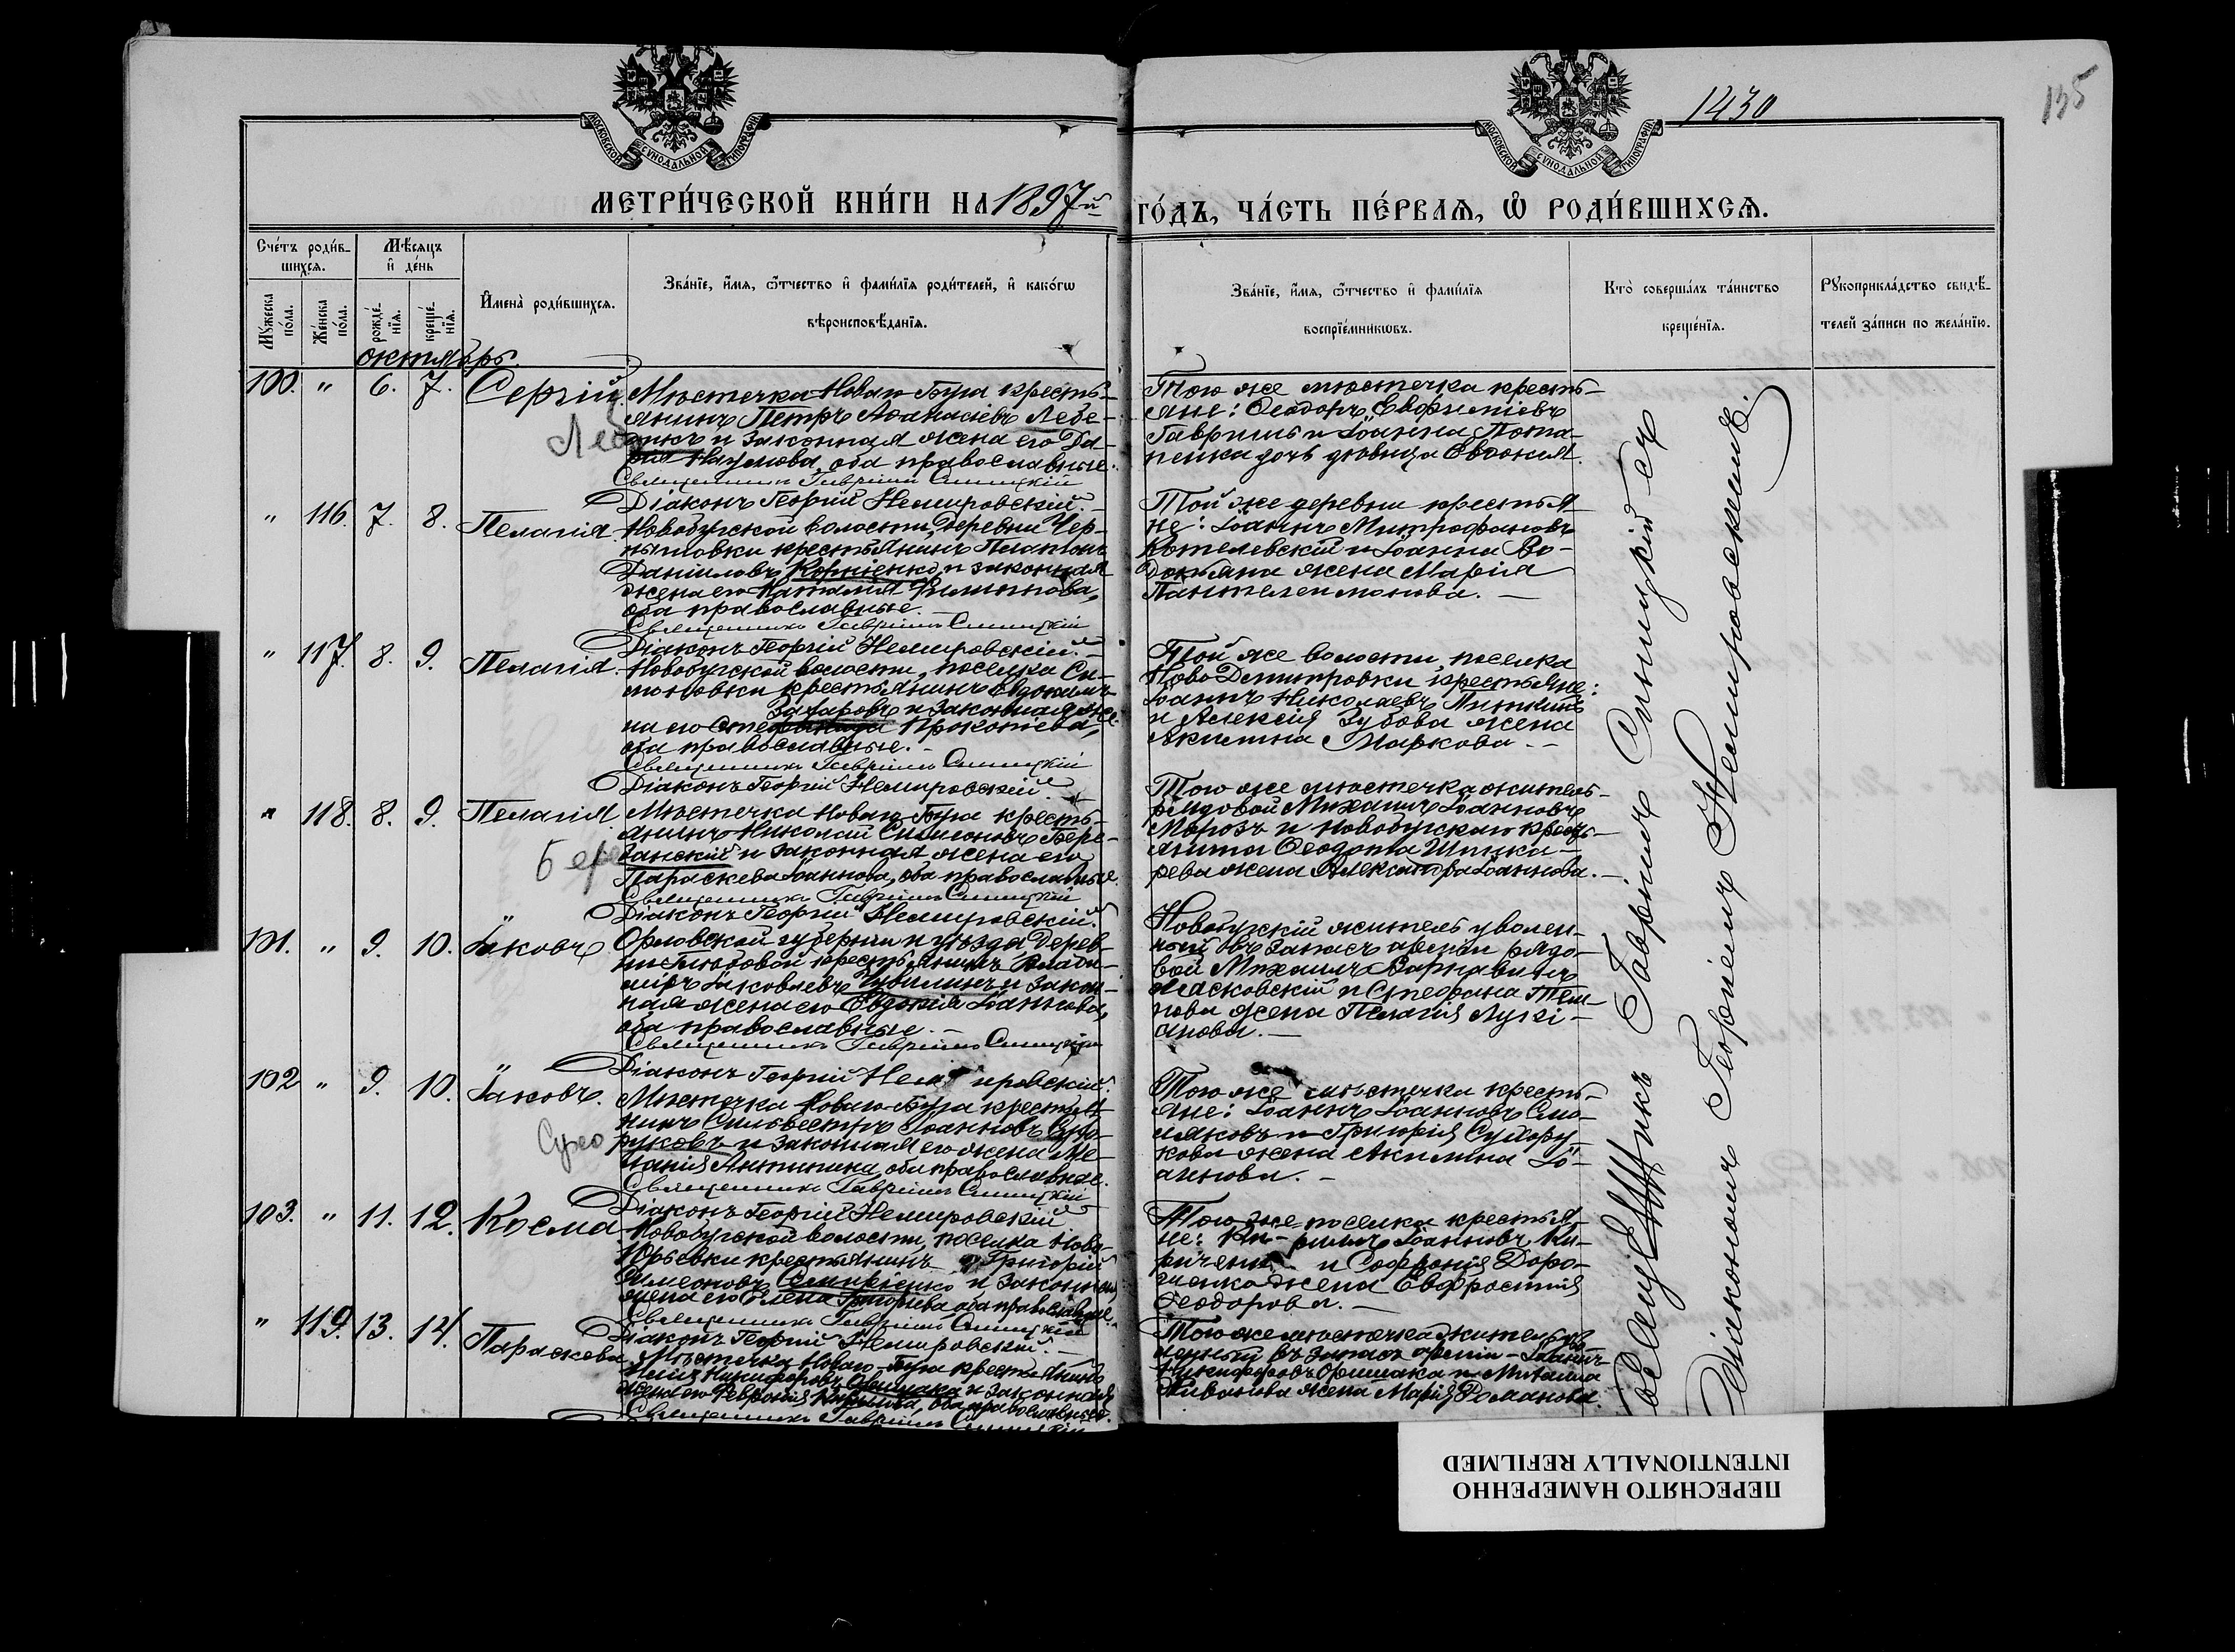 1430
135
МОСКОВСКОЙ СѴНОДАЛЬНОЙ ТИПОГРАФІИ
МОСКОВСКОЙ СѴНОДАЛЬНОЙ ТИПОГРАФІИ
МЕТРИ́ЧЕСКОЙ КНИ́ГИ НА 1897й
ГО́ДЪ, ЧА́СТЬ ПЕ́РВАѦ, Ѽ РОДИ́ВШИХСѦ.
Сче́тъ роди́в-
шихсѧ.
Мѣ́сѧцъ
и҆ де́нь
Мꙋ́жеска по́ла.
Же́нска по́ла.
рожде́-
нїѧ.
креще́-
нїѧ.
И҆мена̀ роди́вшихсѧ.
Зва́нїе, и҆́мѧ, ѻ҆́тчество и҆ фами́лїѧ роди́телей, и҆ како́гѡ
вѣроисповѣ́данїѧ.
Зва́нїе, и҆́мѧ, ѻ҆́тчество и҆ фами́лїѧ
воспрїе́мникѡвъ.
Кто̀ соверша́лъ та́инство
креще́нїѧ.
Рꙋкоприкла́дство свидѣ́-
телей за́писи по жела́нїю.
октябрь.
100. " 6. 7. Сергій
Мѣстечка Новаго-Буга кресть-
янинъ Петръ Аѳанасіевъ Лебе-
дикъ и законная жена его Да-
рія Наумова, оба православные.
Священникъ Гавріилъ Синицкій
Діаконъ Георгій Немировскій.
Леб
Того же мѣстечка кресть-
яне: Ѳеодоръ Евфиміевъ
Гавришъ и Іоанна Пота-
пенка дочь дѣвица Евдокія.
" 116. 7. 8. Пелагія.
Новобугской волости, деревни Чер-
кресть­янинъ Платонъ
Даніиловъ Корніенко и законная
жена его Наталія Филиппова,
оба православные.
Священникъ Гавріилъ Синицкій
Діаконъ Георгій Немировскій.
Той же деревни крестья-
не: Іоаннъ Митрофановъ
Котелевскій и Іоанна Во-
жена Марія
Пантелеимонова.
" 117. 8. 9. Пелагія.
Новобугской волости, поселка Си-
моновки крестьянинъ Евдокимъ
Захаровъ и законная же-
на его Стефанида Прокопіева,
оба православные.
Священникъ Гавріилъ Синицкій
Діаконъ Георгій Немировскій.
Той же волости, поселка
Ново Димитровки крестьяне:
Іоаннъ Николаевъ
и Алексія Зубова жена
Акилина Маркова.
" 118. 8. 9. Пелагія.
Мѣстечка Новаго-Буга кресть-
янинъ Николай Симеоновъ Бере-
занскій и законная жена его
Параскева Іоаннова, оба православные.
Священникъ Гавріилъ Синицкій
Діаконъ Георгій Немировскій.
Бере
Того же мѣстечка житель
рядовой Михаилъ Іоанновъ
Морозъ и новобугскаго кресть-
янина Ѳеодота Шпика-
рева жена Александра Іоаннова.
101. " 9. 10. Іаковъ
Орловской губерніи и уѣзда дерев-
крестьянинъ Влади-
міръ Іаковлевъ и закон-
ная жена его Евдокія Іоаннова,
оба православные.
Священникъ Гавріилъ Синицкій
Діаконъ Георгій Немировскій.
Новобугскій житель уволен-
ный въ запасъ арміи рядо-
вой Михаилъ
и Стефана Теп-
лова жена Пелагія Лукі-
анова.
102 " 9. 10. Іаковъ.
Мѣстечка Новаго-Буга крестья-
нинъ Сильвестръ Іоанновъ Сухо-
руковъ и законная его жена Ме-
ланія Антипина, оба православные.
Священникъ Гавріилъ Синицкій
Діаконъ Георгій Немировскій
Сухо
Того же мѣстечка кресть-
яне: Іоаннъ Іоанновъ
и Григорія Сухору-
кова жена Акилина Іо-
аннова.
103. " 11. 12. Косма
Новобугской волости, поселка Ново-
Юрьевки крестьянинъ Григорій
Симеоновъ и законная
жена его Елена Григорьева, оба православные.
Священникъ Гавріилъ Синицкій
Діаконъ Георгій Немировскій.
Того же поселка крестья-
не: Кириллъ Іоанновъ Ки-
риченко и Софронія Доро-
шенка жена Евфросинія
Ѳеодорова.
" 119. 13. 14. Параскева
Мѣстечка Новаго-Буга крестьянинъ
Никифоровъ и законная
жена его Февронія Кирилова, оба православные.
Священникъ Гавріилъ Синицкій
Того же мѣстечка житель
въ запасъ арміи Іоаннъ
Никифоровъ и Михаила
жена Марія Романова.
Священникъ Гавріилъ Синицкій съ
Діакономъ Георгіемъ Немировскимъ.
ПЕРЕСНЯТО НАМЕРЕННО
INTENTIONALLY REFILMED